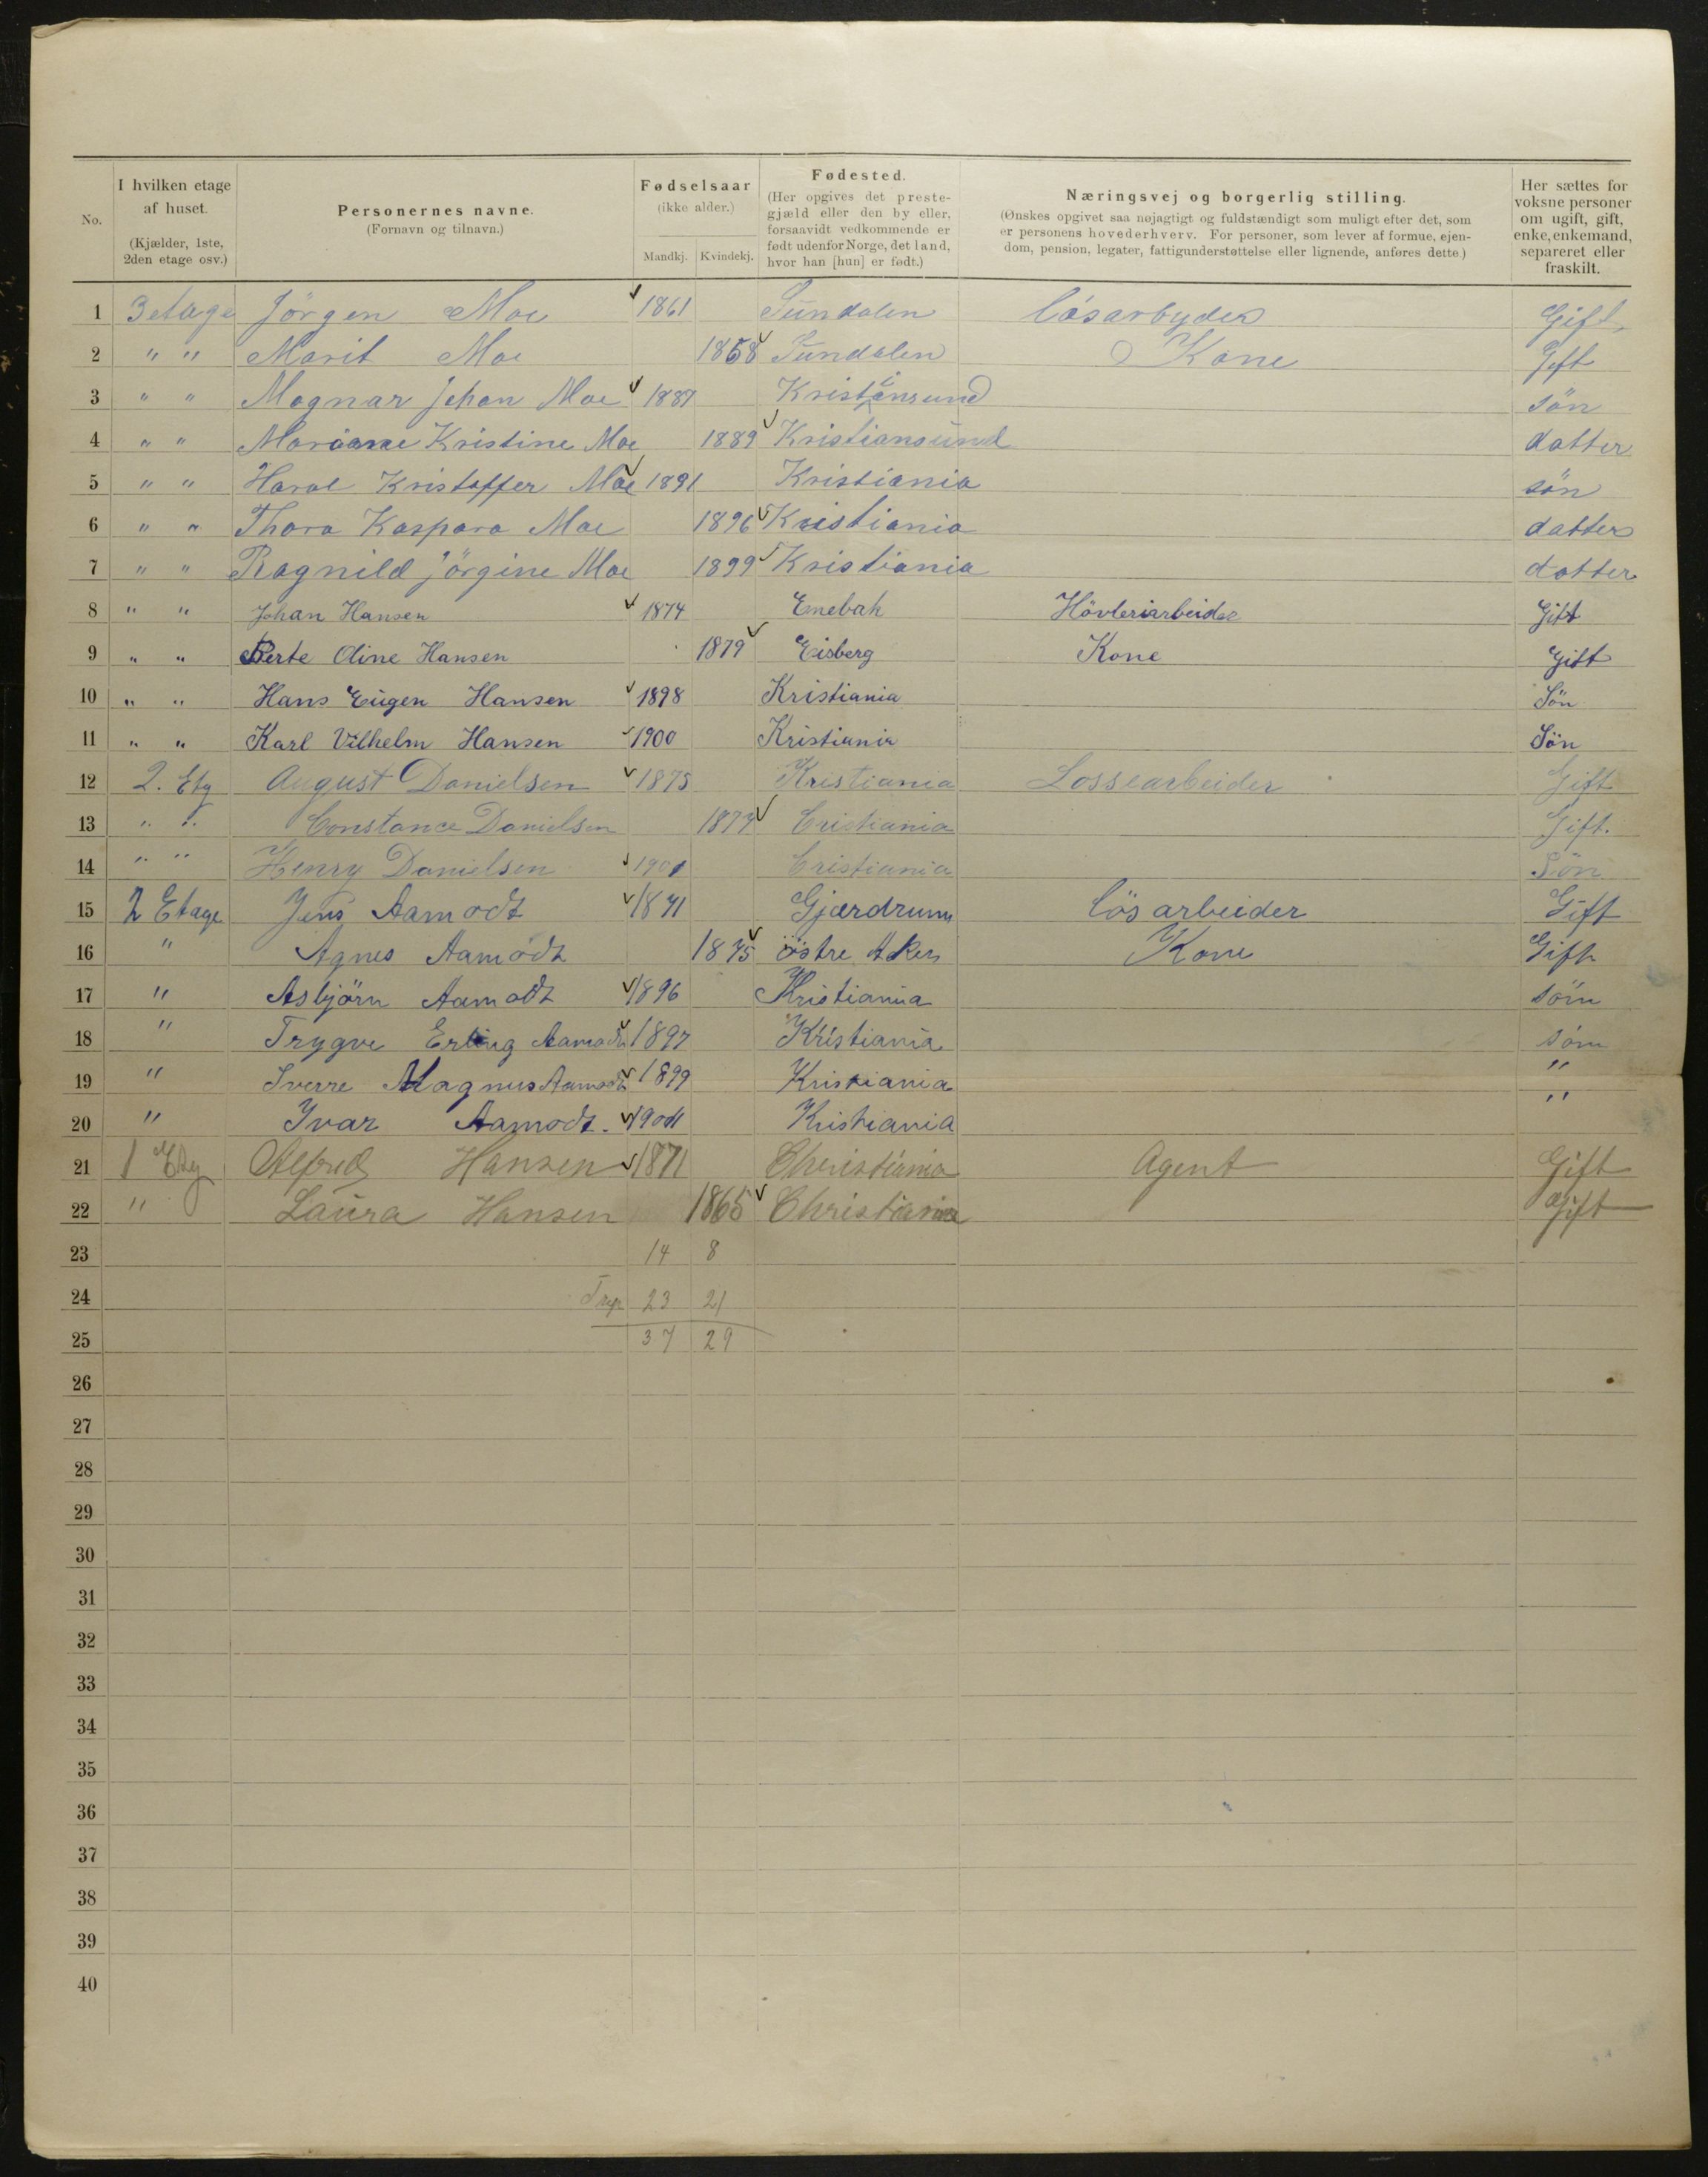 No.
I hvilken etage af huset. (Kjælder, 1ste, 2den etage osv.)
Personernes navne. (Fornavn og tilnavn.)
Fødselsaar (ikke alder.)
Mandkj. Kvindekj.
Fødested. (Her opgives det prestegjæld eller den by eller, forsaavidt vedkommende er født udenfor Norge, det land, hvor han [hun] er født.)
Næringsvej og borgerlig stilling. (Ønskes opgivet saa nøjagtigt og fuldstændigt som muligt efter det, som er personens hovederhverv. For personer, som lever af formue, ejendom, pension, legater, fattigunderstøttelse eller lignende, anføres dette.)
Her sættes for voksne personer om ugift, gift, enke, enkemand, separeret eller fraskilt.
1 3 etage Jörgen Moe 1861 Sundalen lösarbyder Gift
2 " " Marit Moe 1858 Sundalen Kone Gift
3 " " Magnar Johan Moe 1887 Kristiansund sön
4 " " Mariane Kristine Moe 1889 Kristiansund datter
5 " " Haral Kristoffer Moe 1891 Kristiania sön
6 " " Thora Kaspara Moe 1896 Kristiania datter
7 " " Ragnild Jörgine Moe 1899 Kristiania datter
8 " " Johan Hansen 1874 Enebak Hövleriarbeider Gift
9 " " Berte Oline Hansen 1879 Eisberg Kone Gift
10 " " Hans Eugen Hansen 1898 Kristiania Sön
11 " " Karl Vilhelm Hansen 1900 Kristiania Sön
12 2. Etg August Danielsen 1875 Kristiania Lossearbeider Gift
13 " " Constance Danielsen 1877 Cristiania Gift.
14 " " Henry Danielsen 1901 Cristiania Sön
15 2 Etage Jens Aamodt 1871 Gjærdrum lösarbeider Gift
16 " Agnes Aamodt 1875 östre Aker Kone Gift
17 " Asbjörn Aamodt 1896 Kristiania sön
18 " Trygve Erling Aamodt 1897 Kristiania sön
19 " Sverre Magnus Aamodt 1899 Kristiania "
20 " Yvar Aamodt. 1901 Kristiania "
21 1 Etg Alfred Hansen 1871 Christiania Agent Gift
22 " Laura Hansen 1865 Christiania Gift
23 14 8
24 23 21
25 37 29
26
27
28
29
30
31
32
33
34
35
36
37
38
39
40